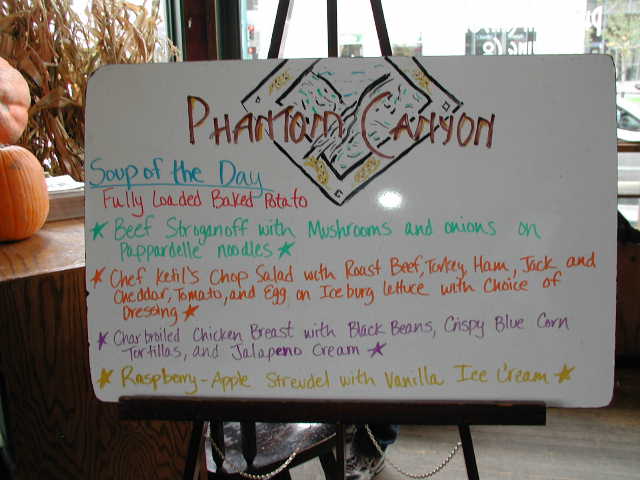 Phantom Canyon
Soup of the Day
Fully Loaded Baked Potato
Beef Stroganoff with Mushrooms and onions on
Pappardelle noodles
Chef Ketil's Chop Salad with Roast Beef, Turkey, Ham, Jack and
Cheddar, Tomato, and Egg on Iceburg lettuce with Choice of
Dressing
Charbroiled Chicken Breast with Black Beans, Crispy Blue Corn
Tortillas, and Jalapeno Cream
Raspberry-Apple Streudel with Vanilla Ice Cream